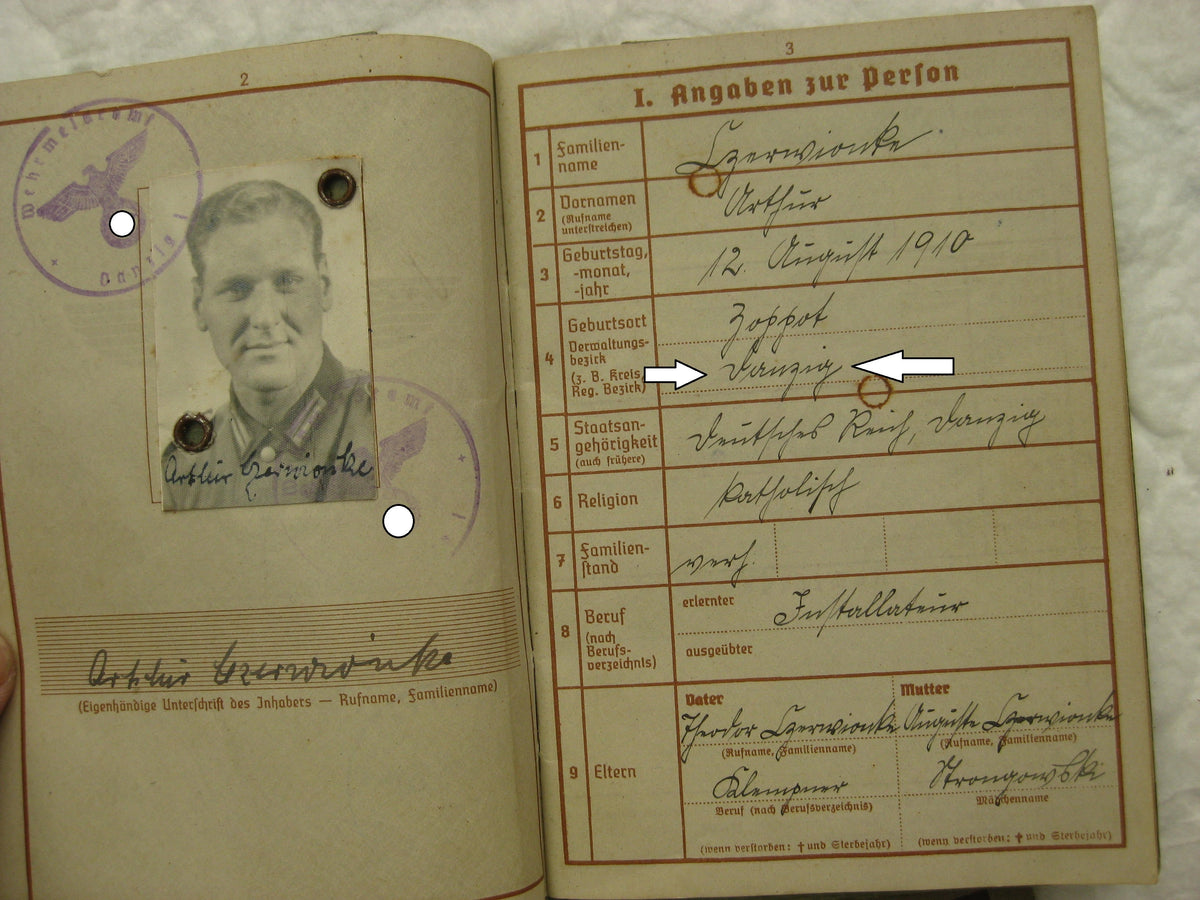 2
Wehrmeldeamt
Danzig 1
Arthur Czerwionke
Arthur Czerwionke
(Eigenhändige Unterschrift des Inhabers — Rufname, Familienname)
3
I. Angaben zur Person
1 Familien-
name
Czerwionke
2 Vornamen
(Rufname
unterstreichen)
Arthur
3 Geburtstag,
-monat,
-jahr
12. August 1910
4 Geburtsort
Verwaltungs-
bezirk
(z. B. Kreis,
Reg. Bezirk)
Zoppot
Danzig
5 Staatsan-
gehörigkeit
(auch frühere)
Deutsches Reich, Danzig
6 Religion
katholisch
7 Familien-
stand
verh.
8 Beruf
(nach
Berufs-
verzeichnis)
erlernter Installateur
ausgeübter
9 Eltern
Vater
Theodor Czerwionke
(Rufname, Familienname)
Klempner
Beruf (nach Berufsverzeichnis)
(wenn verstorben: † und Sterbejahr)
Mutter
Auguste Czerwionke
(Rufname, Familienname)
Strongowski
Mädchenname
(wenn verstorben: † und Sterbejahr)